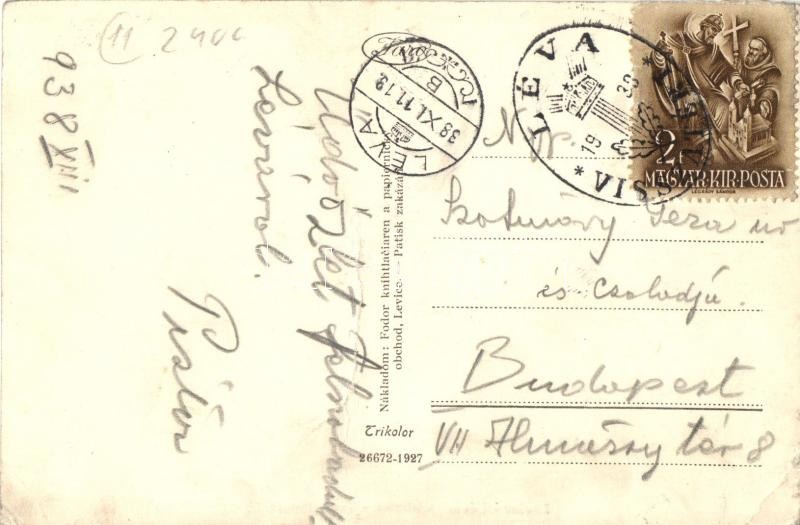 11 2400
938 XI/11
Üdvözlet
Léváról.
Pista
Nákladom: Fodor knihtlačiaren a papiernický
obchod, Levice. — Patisk zakázaný
Trikolor
26672-1927
LÉVA
38.XI.11.18
B
LÉVA VISSZATÉRT
1938
2f
MAGYAR·KIR·POSTA
LÉGRÁDY SÁNDOR
Szotmáry Géza úr
és családja.
Budapest
VII Almássy tér 8